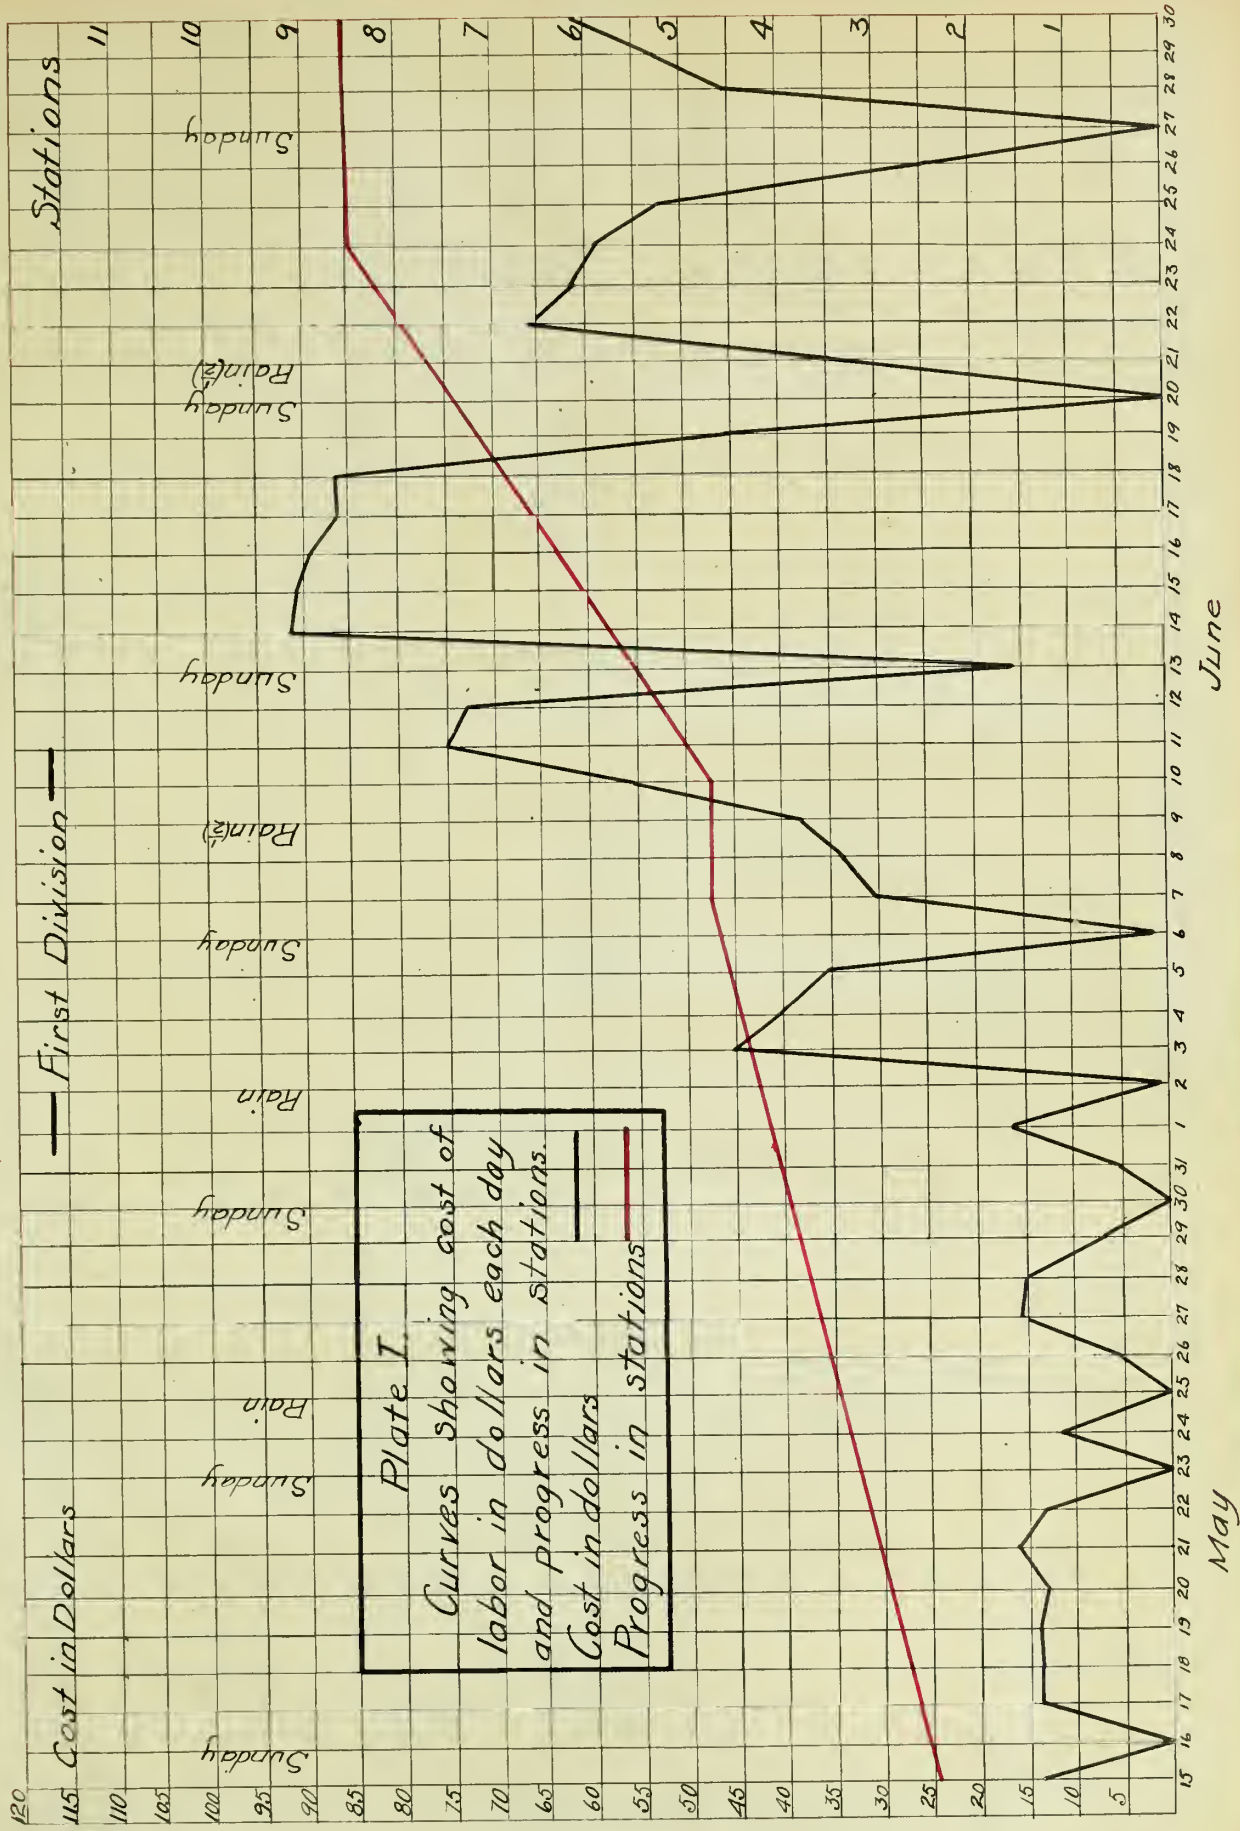 First Division
Cost in Dollars
Stations
120
115
110
105
100
95
90
85
80
75
70
65
60
55
50
45
40
35
30
25
20
15
10
5
11
10
9
8
7
6
5
4
3
2
1
Sunday
Sunday
Rain
Sunday
Rain
Sunday
Rain (1/2)
Sunday
Sunday
Rain (1/2)
Sunday
Plate I.
Curves showing cost of
labor in dollars each day
and progress in stations.
Cost in dollars
Progress in stations
15 16 17 18 19 20 21 22 23 24 25 26 27 28 29 30 31 1 2 3 4 5 6 7 8 9 10 11 12 13 14 15 16 17 18 19 20 21 22 23 24 25 26 27 28 29 30
May June